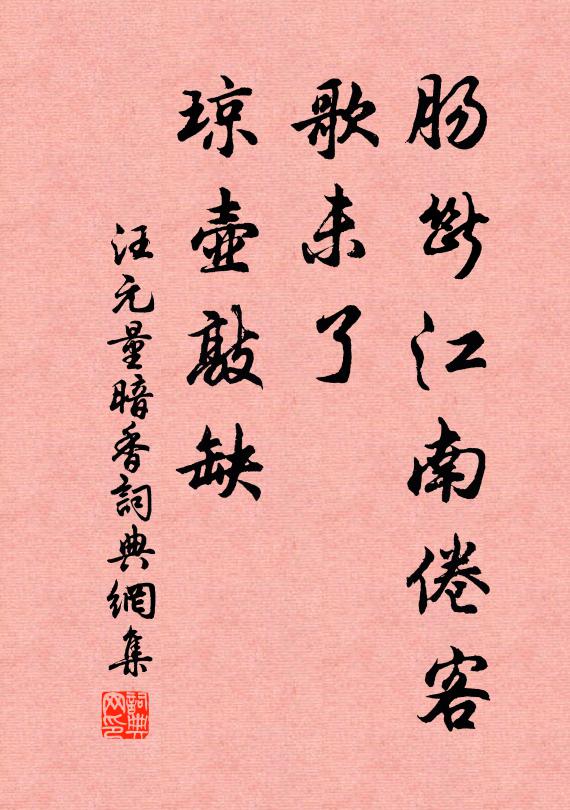 肠断江南倦客
歌未了
琼壶敲缺
汪元量暗香詞典網集
詞典网印